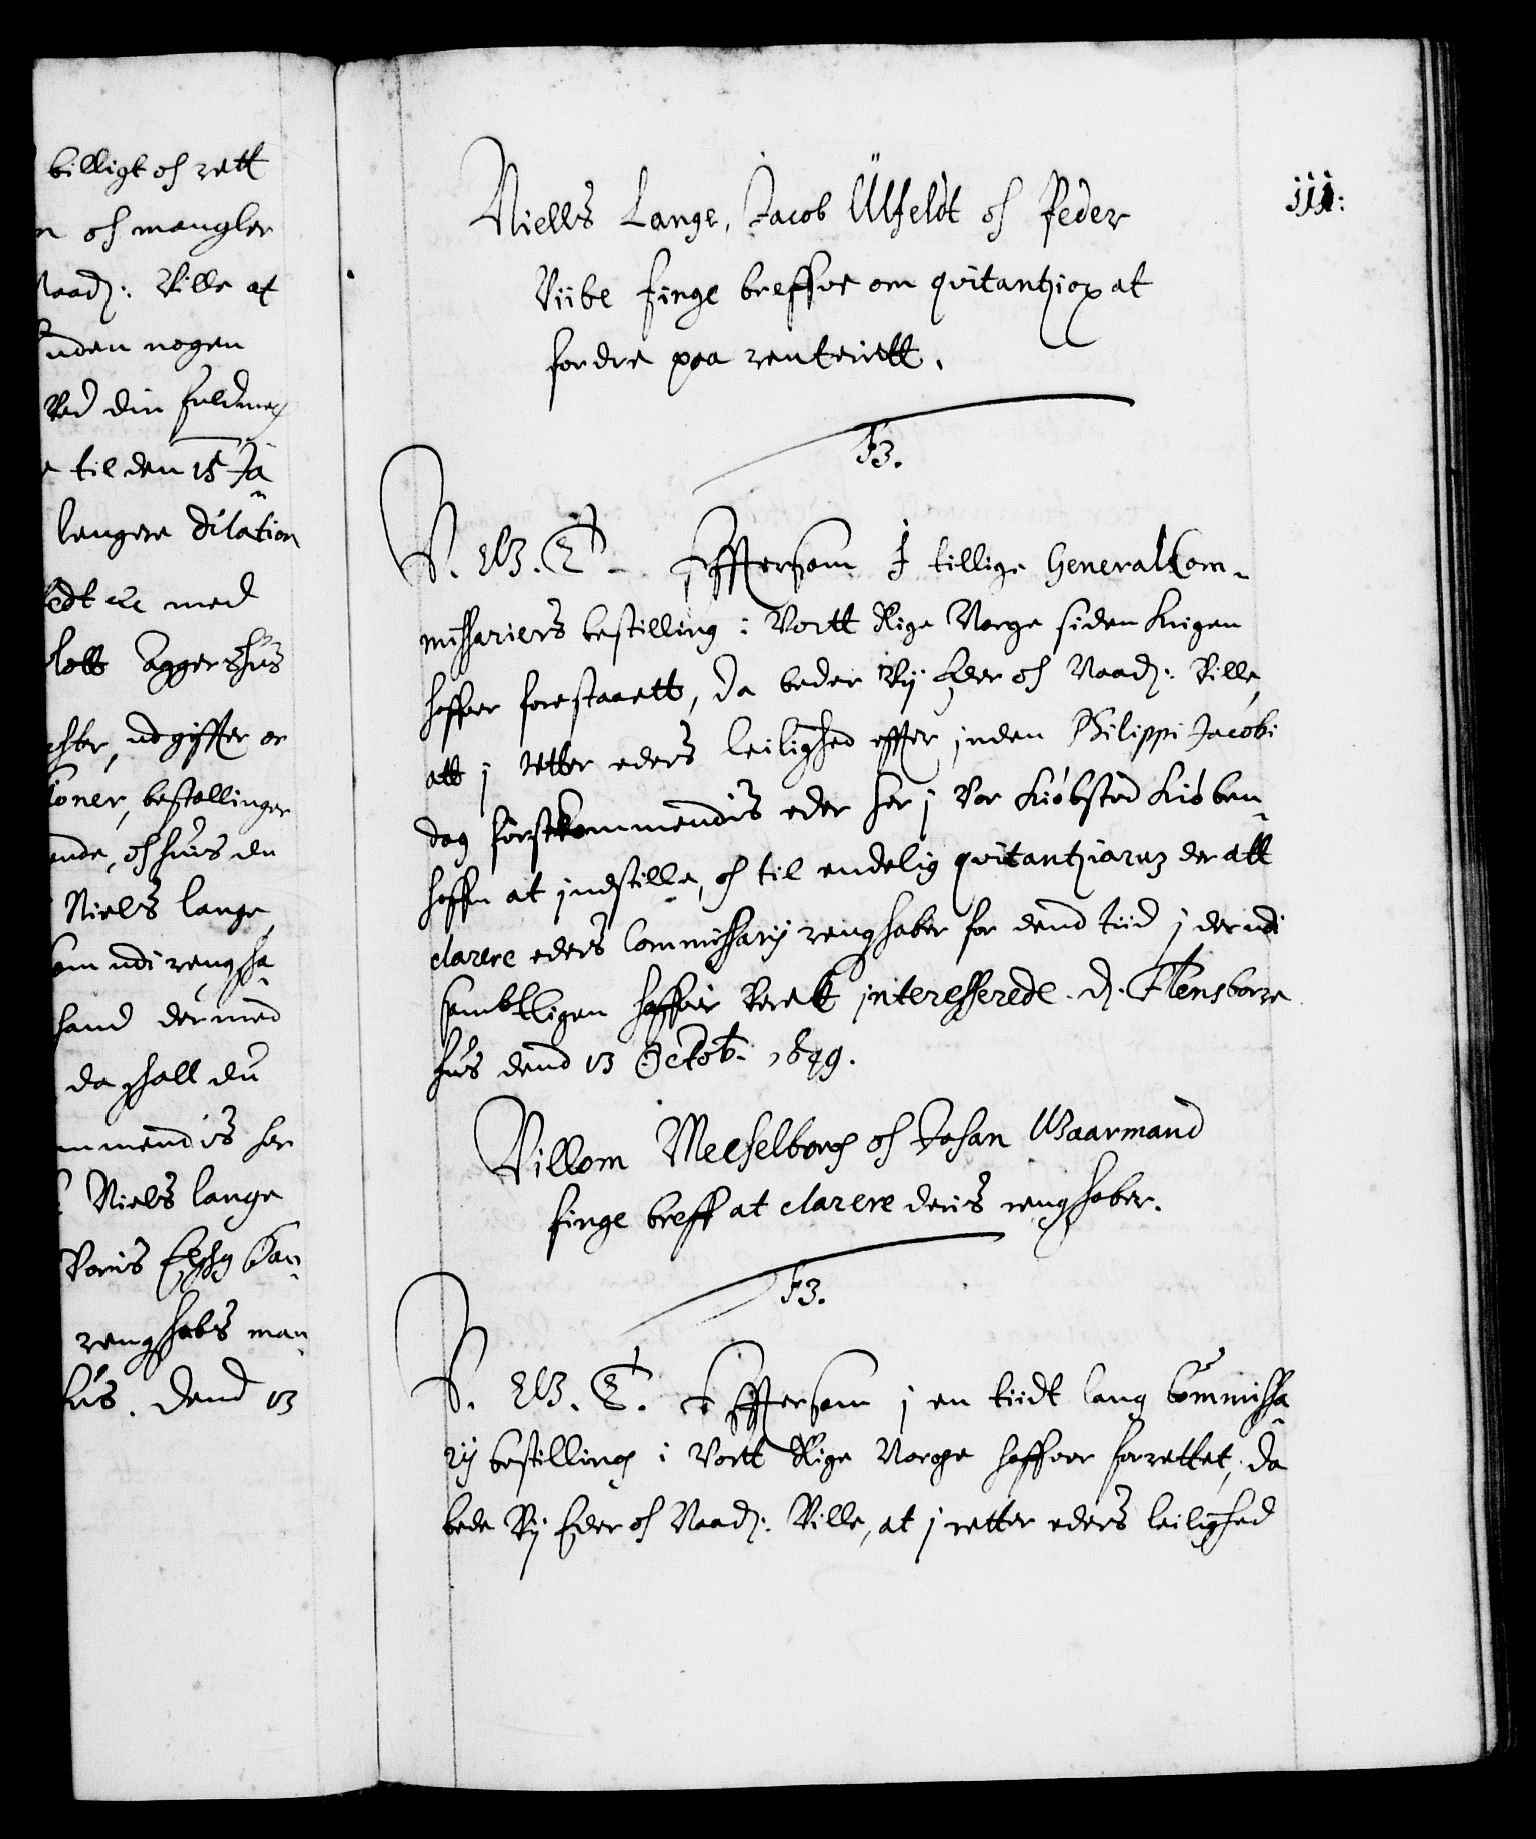 billigt oc rett
n oc mangler
Naadj: Ville at
uden nogen
Ved din fuldmegt
e til den 15 Ja
lengere dilation
med
slott Aggershus
udgiffter or
bestallinger
ende, oc huis du
Niels lange
som udi rengsha
hand dermed
da schall du
mmendis her
Niels lange
Voris
rengskabs man
hus. Dend 13
iii:
Niells Lange, Jacob Ülfeldt oc Peder
Viibe finge breffve om qvitantziar at
fordre paa renteriett.
F3.
V. G. T. Efftersom I tillige General Com-
missariers bestilling i Vortt Rige Norge siden krigen
haffver forestaaett, da beder Vij Eder oc Naadj: Ville,
att j retter eders leilighed effter, inden Philippi Jacobi
dag förstkommendis eder her j Vor Kiöbsted Kiöben-
haffn at jndstille, oc til endelig qvitantziarumb der att
clarere eders Commissarij rengskaber for dend tiid j derudi
sambtligen haffver Verett interesserede. dj. Flensborre
hus dend 13 Octob. 1649.
Villom Mecselborg oc Johan Gaarmand
finge breff at clarere deris rengskaber.
F3.
V. G. T. Efftersom j en tiidt lang Commissa
rij bestilling i Vortt Rige Norge haffver forrettet, da
bede Vij Eder oc Naadj: Ville, at j retter eders leilighed